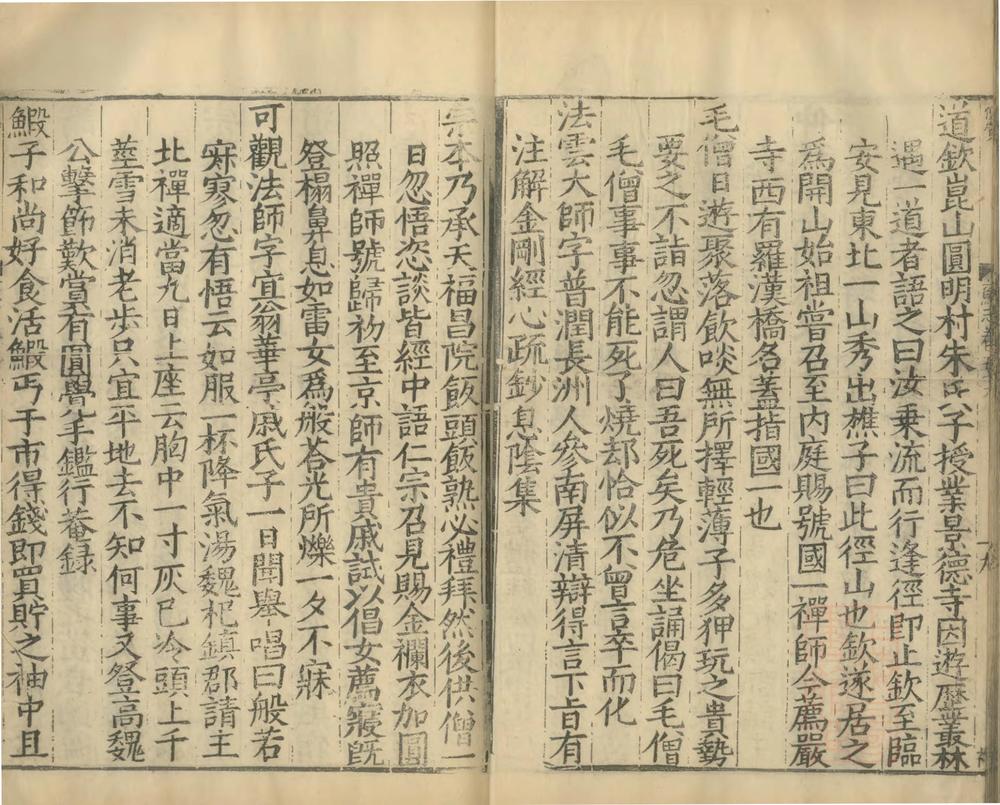 道欽崑山圓明村朱氏子授業景德寺因遊歷叢林
遇一道者語之曰汝乗流而行逢徑即止欽至臨
安見東北一山秀出樵子曰此徑山也欽遂居之
爲開山始祖嘗召至内庭賜號國一禪師今薦嚴
寺西有羅漢橋名蓋指國一也
毛僧日遊聚落飲啖無所擇輕薄子多狎玩之貴勢
要之不詣忽謂人曰吾死矣乃危坐誦偈曰毛僧
毛僧事事不能死了燒却恰似不曾言卒而化
法雲大師字普潤長洲人參南屏清辯得言下旨有
注解金剛經心疏鈔息陰集
宗本乃承天福昌院飯頭飯熟必禮拜然後供僧一
日忽悟恣談皆經中語仁宗召見賜金襴衣加圓
照禪師號歸初至京師有貴戚試以倡女薦寢旣
登榻鼻息如雷女爲般若光所爍一夕不寐
可觀法師字宜翁華亭戚氏子一日聞舉唱曰般若
寂寥忽有悟云如服一杯降氣湯魏杞鎮郡請主
北禪適當九日上座云胸中一寸灰已冷頭上千
莖雪未消老步只宜平地去不知何事又登高魏
公擊節歎賞有圓覺手鑑行菴録
鰕子和尚好食活鰕丐于市得錢即買貯之袖中且